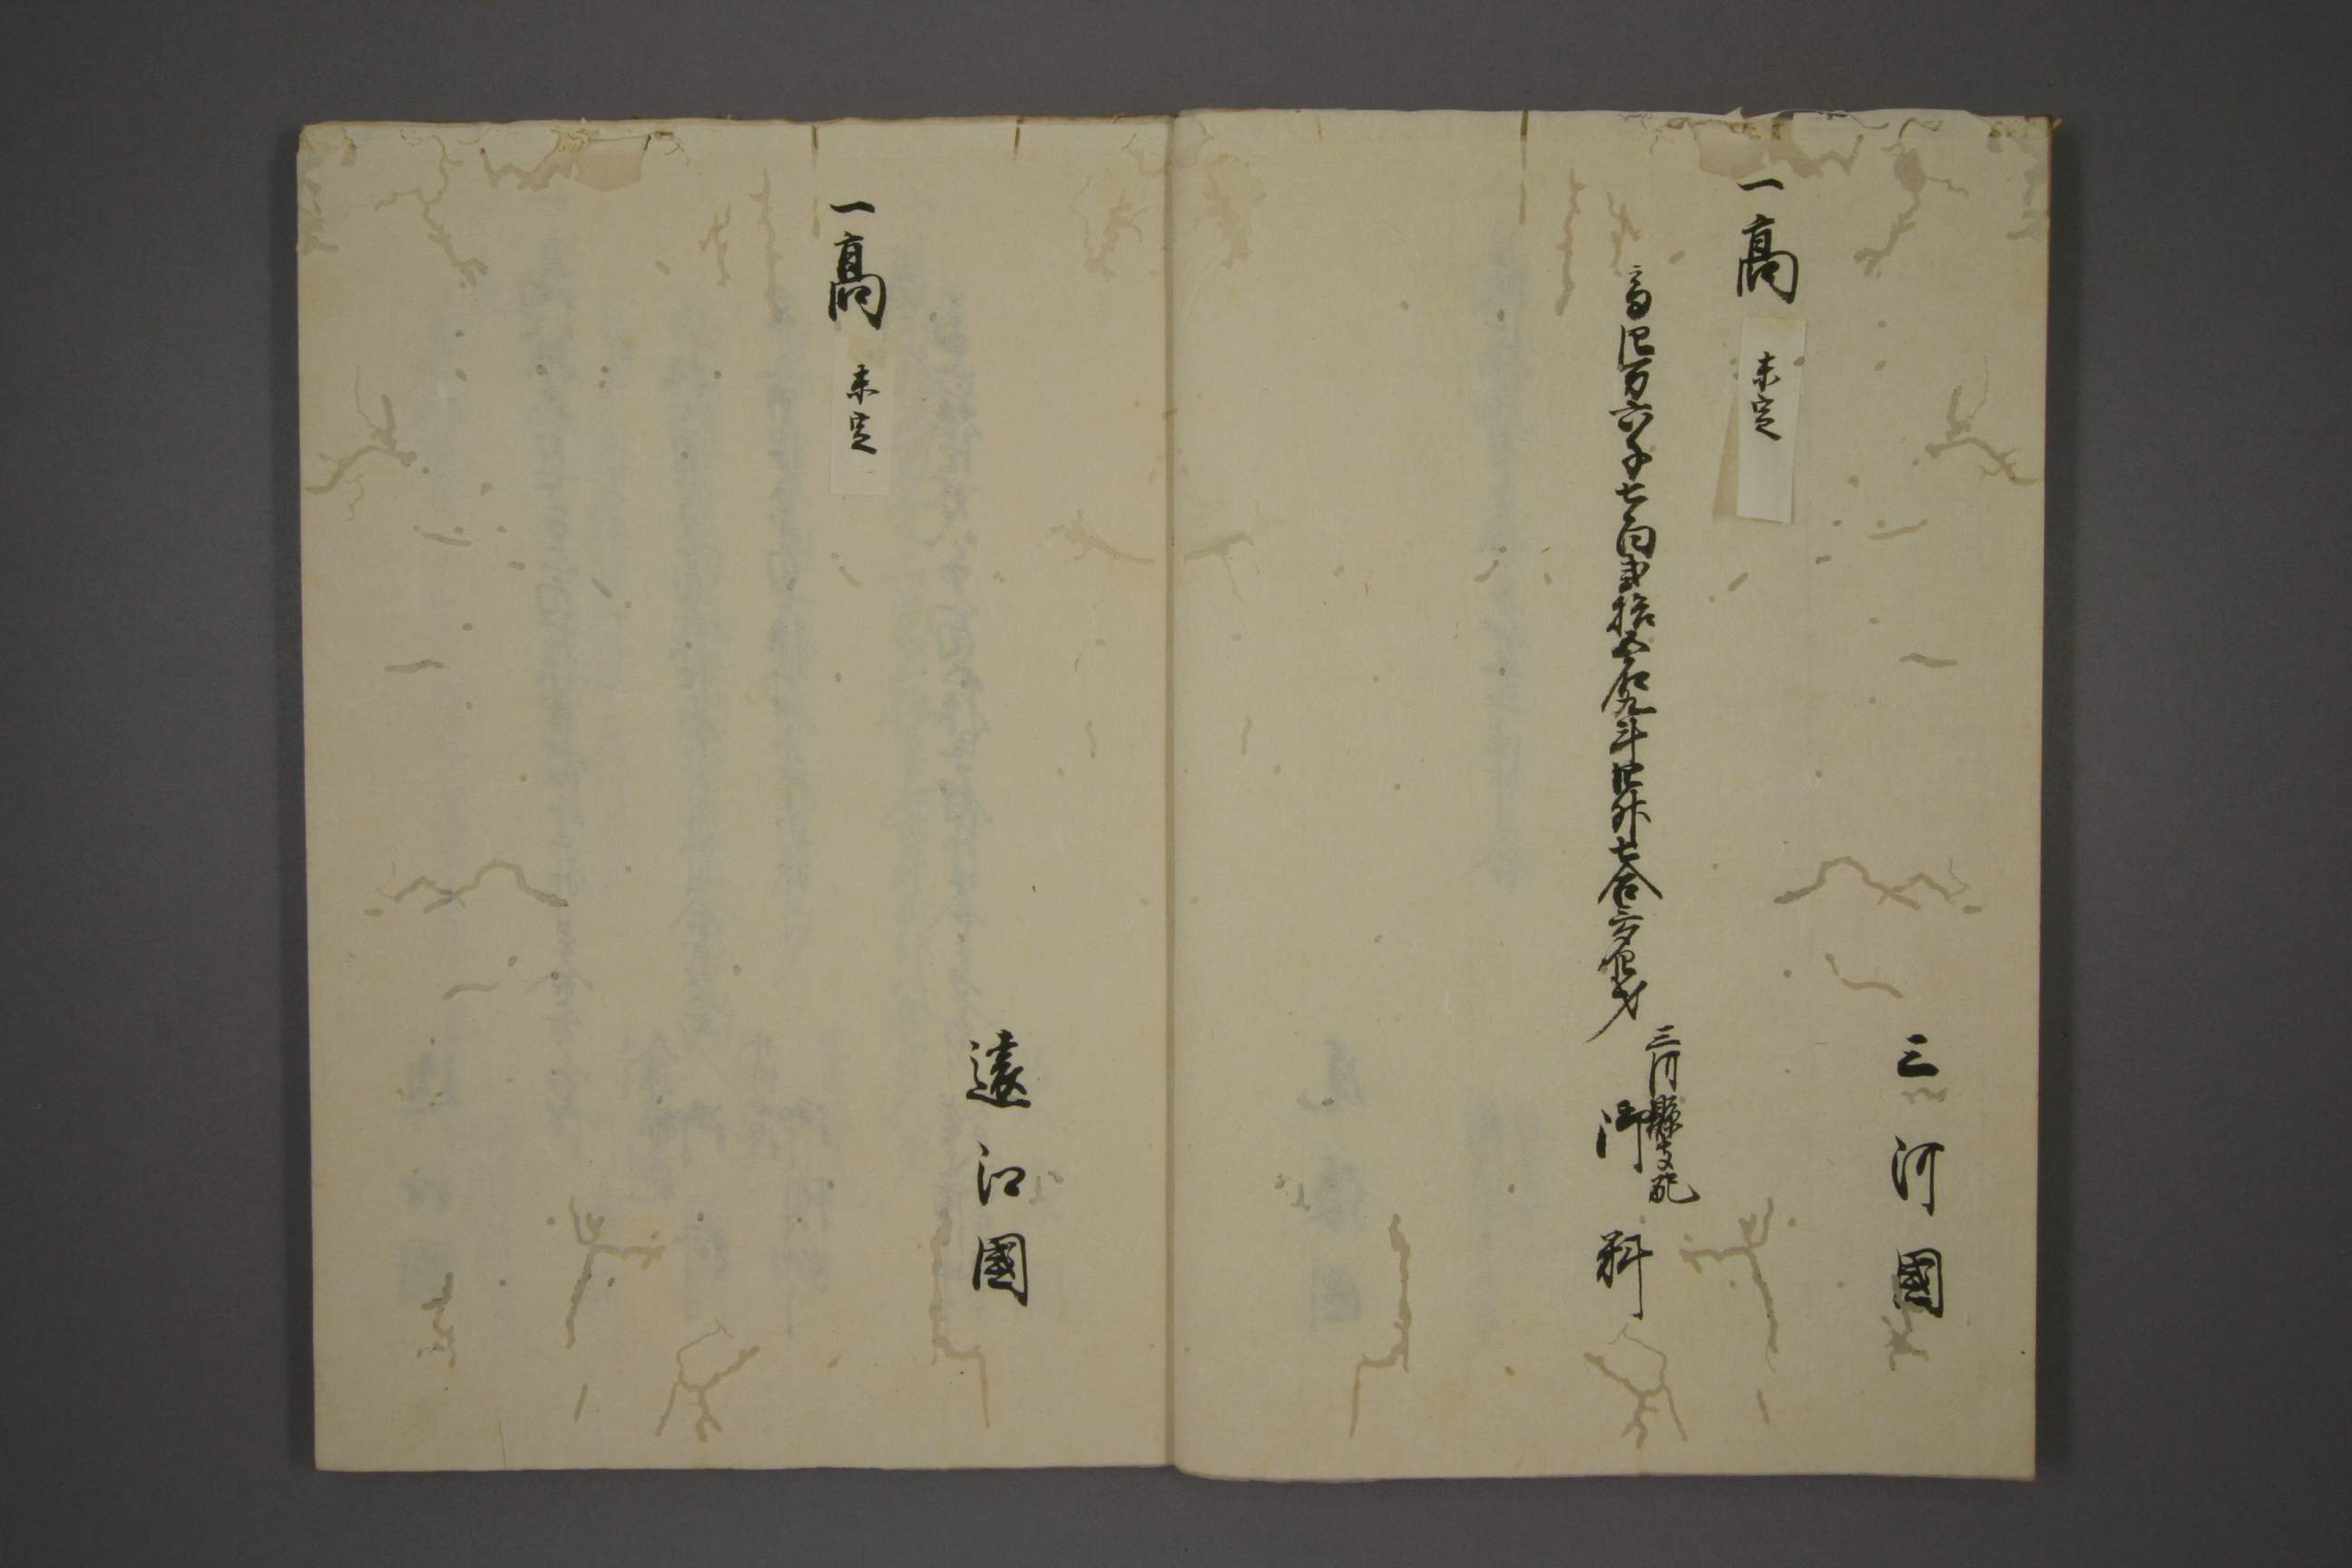 三河國
一高 未定
高四万六千七百貳拾五石九斗四升七合三夕四才
三河縣支配
御料
遠江國
一高 未定